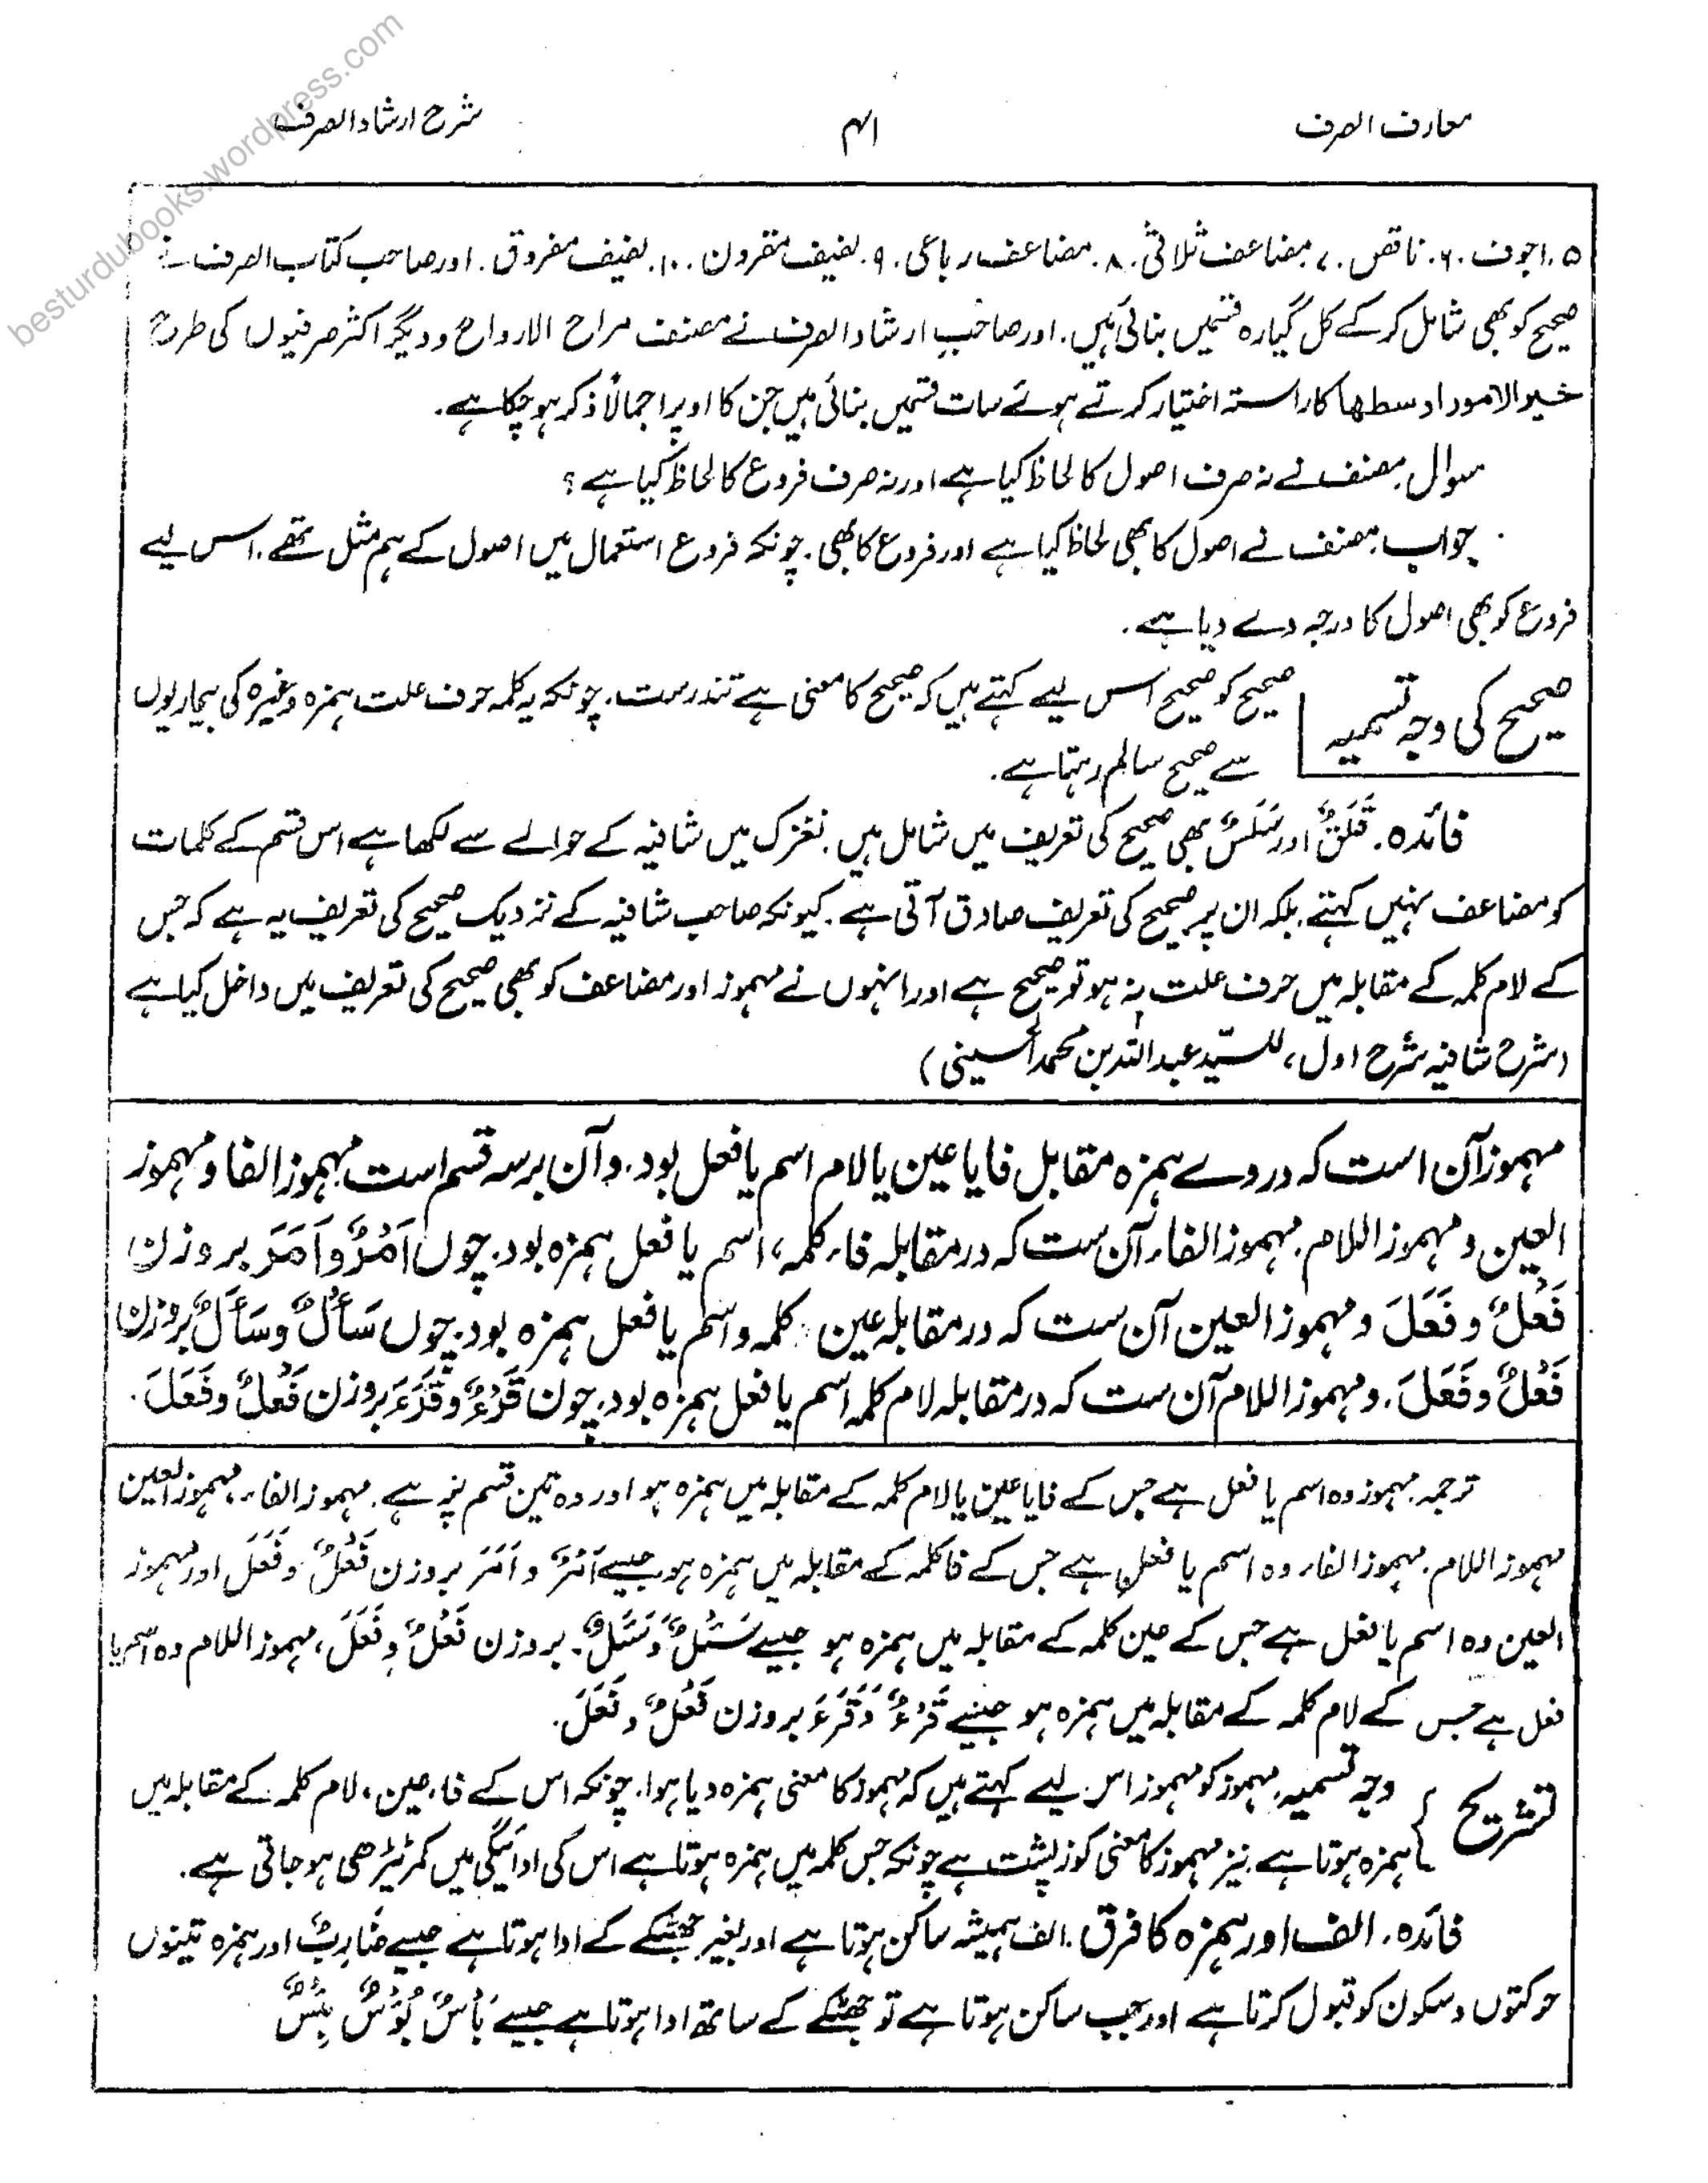 معارف الصرف
۴۱
شرح ارشاد الصرف
besturdubooks.wordpress.com
۵۔ اجوف ۔ ۶۔ ناقص ۔ ۷۔ مضاعف ثلاثی ۔ ۸۔ مضاعف رباعی ۔ ۹۔ لفیف مقرون ۔ ۱۰۔ لفیف مفروق ۔ اور صاحب کتاب الصرف نے
صحیح کو بھی شامل کر کے کل گیارہ قسمیں بنائی ہیں ۔ اور صاحبِ ارشاد الصرف نے مصنف مراح الارواح و دیگر اکثر صرفیوں کی طرح
خیر الامور اوسطھا کا راستہ اختیار کرتے ہوئے سات قسمیں بنائی ہیں جن کا اوپر اجمالاً ذکر ہو چکا ہے ۔
سوال ۔ مصنف نے نہ صرف اصول کا لحاظ کیا ہے اور نہ صرف فروع کا لحاظ کیا ہے ؟
جواب ۔ مصنف نے اصول کا بھی لحاظ کیا ہے اور فروع کا بھی ۔ چونکہ فروع استعمال میں اصول کے ہم مثل تھے ۔ اس لیے
فروع کو بھی اصول کا درجہ دے دیا ہے ۔
صحیح کی وجہ تسمیہ
صحیح کو صحیح اس لیے کہتے ہیں کہ صحیح کا معنی ہے تندرست ۔ چونکہ یہ کلمہ حرف علت ہمزہ وغیرہ کی بیماریوں
سے صحیح سالم رہتا ہے ۔
فائدہ ۔ قَلَقٌ اور سَلَسٌ بھی صحیح کی تعریف میں شامل ہیں ۔ نغزک میں شافیہ کے حوالے سے لکھا ہے اس قسم کے کلمات
کو مضاعف نہیں کہتے ۔ بلکہ ان پر صحیح کی تعریف صادق آتی ہے ۔ کیونکہ صاحب شافیہ کے نزدیک صحیح کی تعریف یہ ہے کہ جس
کے لام کلمہ کے مقابلہ میں حرف علت نہ ہو تو صحیح ہے اور انہوں نے مہموز اور مضاعف کو بھی صحیح کی تعریف میں داخل کیا ہے
(شرح شافیہ شرح اول ، للسیّد عبد اللہ بن محمد الحسینی)
مہموز آن است کہ در وے ہمزہ مقابل فا یا عین یا لام اسم یا فعل بود ۔ و آن بر سہ قسم است ۔ مہموز الفا و مہموز
العین و مہموز اللام ۔ مہموز الفاء آن ست کہ در مقابلہ فاء کلمہ ، اسم یا فعل ہمزہ بود ۔ چوں اَمْرٌ وَ اَمَرَ بر وزن
فَعْلٌ و فَعَلَ و مہموز العین آن ست کہ در مقابلہ عین کلمہ و اسم یا فعل ہمزہ بود ۔ چوں سَأْلٌ و سَأَلَ بر وزن
فَعْلٌ و فَعَلَ ۔ و مہموز اللام آن ست کہ در مقابلہ لام کلمہ اسم یا فعل ہمزہ بود ۔ چون قَرْءٌ و قَرَءَ بر وزن فَعْلٌ و فَعَلَ ۔
ترجمہ ۔ مہموز وہ اسم یا فعل ہے جس کے فا یا عین یا لام کلمہ کے مقابلہ میں ہمزہ ہو اور وہ تین قسم پر ہے ۔ مہموز الفاء ، مہموز العین
مہموز اللام ۔ مہموز الفاء وہ اسم یا فعل ہے جس کے فا کلمہ کے مقابلہ میں ہمزہ ہو جیسے اَمْرٌ و اَمَرَ بر وزن فَعْلٌ و فَعَلَ اور مہموز
العین وہ اسم یا فعل ہے جس کے عین کلمہ کے مقابلہ میں ہمزہ ہو جیسے سَئْلٌ وَ سَئَلَ ۔ بر وزن فَعْلٌ و فَعَلَ ، مہموز اللام وہ اسم یا
فعل ہے جس کے لام کلمہ کے مقابلہ میں ہمزہ ہو جیسے قَرْءٌ وَ قَرَءَ بر وزن فَعْلٌ و فَعَلَ ۔
تشریح
وجہ تسمیہ ۔ مہموز کو مہموز اس لیے کہتے ہیں کہ مہموز کا معنی ہمزہ دیا ہوا ۔ چونکہ اس کے فا ، عین ، لام کلمہ کے مقابلہ میں
ہمزہ ہوتا ہے ۔ نیز مہموز کا معنی کوزپشت ہے چونکہ جس کلمہ میں ہمزہ ہوتا ہے اس کی ادائیگی میں کمر ٹیڑھی ہو جاتی ہے ۔
فائدہ ۔ الف اور ہمزہ کا فرق ۔ الف ہمیشہ ساکن ہوتا ہے اور بغیر جھٹکے کے ادا ہوتا ہے جیسے ضَارِبٌ اور ہمزہ تینوں
حرکتوں و سکون کو قبول کرتا ہے اور جب ساکن ہوتا ہے تو جھٹکے کے ساتھ ادا ہوتا ہے جیسے بَأْسٌ بُؤْسٌ بِئْسٌ